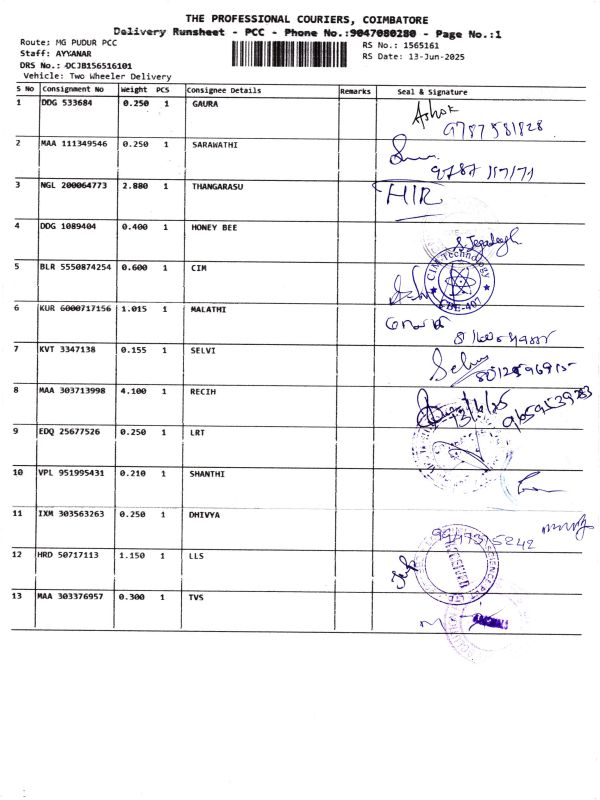 THE PROFESSIONAL COURIERS, COIMBATORE
Delivery Runsheet - PCC - Phone No.:9047080280 - Page No.:1
Route: MG PUDUR PCC
RS No.: 1565161
Staff: AYYANAR
RS Date: 13-Jun-2025
DRS No.: DCJB156516101
Vehicle: Two Wheeler Delivery
S No Consignment No Weight PCS Consignee Details Remarks Seal & Signature
1 DDG 533684 0.250 1 GAURA Ashok
9787581828
2 MAA 111349546 0.250 1 SARAWATHI
9787 117171
3 NGL 200064773 2.880 1 THANGARASU HIR
4 DDG 1089404 0.400 1 HONEY BEE S. Jegadeesh
5 BLR 5550874254 0.600 1 CIM CIM Technology CBE-407
6 KUR 6000717156 1.015 1 MALATHI
7 KVT 3347138 0.155 1 SELVI Selvi
8 MAA 303713998 4.100 1 RECIH 13/6/25 9659539283
9 EDQ 25677526 0.250 1 LRT
10 VPL 951995431 0.210 1 SHANTHI
11 IXM 303563263 0.250 1 DHIVYA
12 HRD 50717113 1.150 1 LLS RECEIVED
13 MAA 303376957 0.300 1 TVS